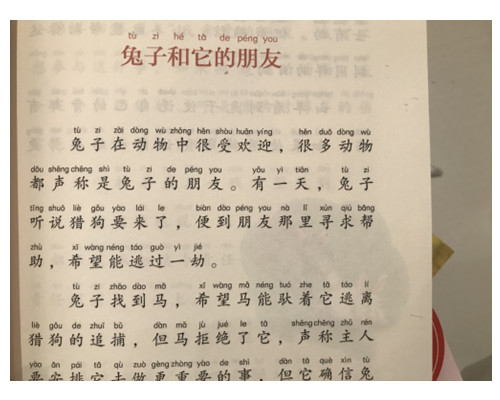 tù zi hé tā de péng you
兔子和它的朋友
tù zi zài dòng wù zhōng hěn shòu huān yíng hěn duō dòng wù
兔子在动物中很受欢迎，很多动物
dōu shēng chēng shì tù zi de péng you yǒu yì tiān tù zi
都声称是兔子的朋友。有一天，兔子
tīng shuō liè gǒu yào lái le biàn dào péng you nà lǐ xún qiú bāng
听说猎狗要来了，便到朋友那里寻求帮
zhù xī wàng néng táo guò yì jié
助，希望能逃过一劫。
tù zi zhǎo dào mǎ xī wàng mǎ néng tuó zhe tā táo lí
兔子找到马，希望马能驮着它逃离
liè gǒu de zhuī bǔ dàn mǎ jù jué le tā shēng chēng zhǔ rén
猎狗的追捕，但马拒绝了它，声称主人
yào ān pái tā qù zuò gèng zhòng yào de shì dàn tā què xìn tù
要安排它去做更重要的事，但它确信兔